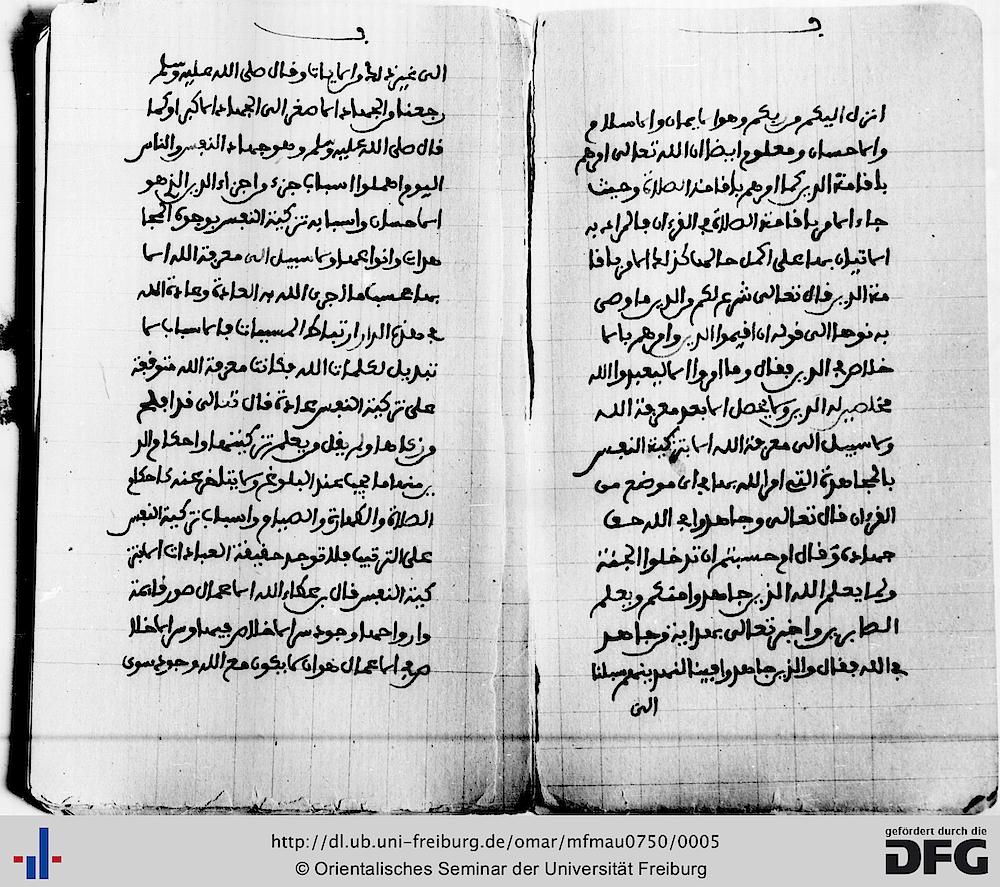 انزل اليكم من ربكم وهو الايمان والاسلام
والاحسان ومعلوم ايضا ان الله تعالى امرهم
باقامة الدين كما امرهم باقامة الصلاة وحيث
جاء الامر باقامة الصلاة في القرءان فالمراد به
الاتيان بها على اكمل حالها كذلك الامر باقا
مة الدين قال تعالى شرع لكم من الدين ما وصى
به نوحا الى قوله ان اقيموا الدين وامرهم بالا
خلاص في الدين فقال وما امروا الا ليعبدوا الله
مخلصين له الدين ولا يحصل الا بعد معرفة الله
ولا سبيل الى معرفة الله الا بتزكية النفس
بالمجاهدة التي امر الله بها في موضع من
القرءان قال تعالى وجاهدوا في الله حق
جهاده وقال ام حسبتم ان تدخلوا الجنة
ولما يعلم الله الذين جاهدوا منكم ويعلم
الصابرين واخبر تعالى بهداية من جاهد
في الله فقال والذين جاهدوا فينا لنهدينهم سبلنا
الى
الى غير ذلك من الايات وقال صلى الله عليه وسلم
رجعنا من الجهاد الاصغر الى الجهاد الاكبر او كما
قال صلى الله عليه وسلم وهو جهاد النفس والناس
اليوم اهملوا اسباب جزء من اجزاء الدين الذي هو
الاحسان واسبابه تزكية النفس بوجوه المجا
هدات وانواعها ولا سبيل الى معرفة الله الا
بها حسبما اجرى الله به العادة وعادة الله
في هذه الدار ارتباط المسببات بالاسباب لا
تبديل لكلمات الله فكانت معرفة الله متوقفة
على تزكية النفس عادة قال تعالى قد افلح
من زكاها ولم يقل من يعلم تزكيتها واحكام الد
ين منها ما يجب عند البلوغ ولا يتاخر عنه كاحكام
الصلاة والطهارة والصيام واسباب تزكية النفس
على الترتيب فلا توجد حقيقة العبادات الا بتز
كية النفس قال بن عطاء الله الاعمال صور قائمة
وارواحها وجود سر الاخلاص فيها وسر الاخلا
ص في الاعمال هو ان لا يكون مع الله وجود سوى
http://dl.ub.uni-freiburg.de/omar/mfmau0750/0005
© Orientalisches Seminar der Universität Freiburg
gefördert durch die
DFG